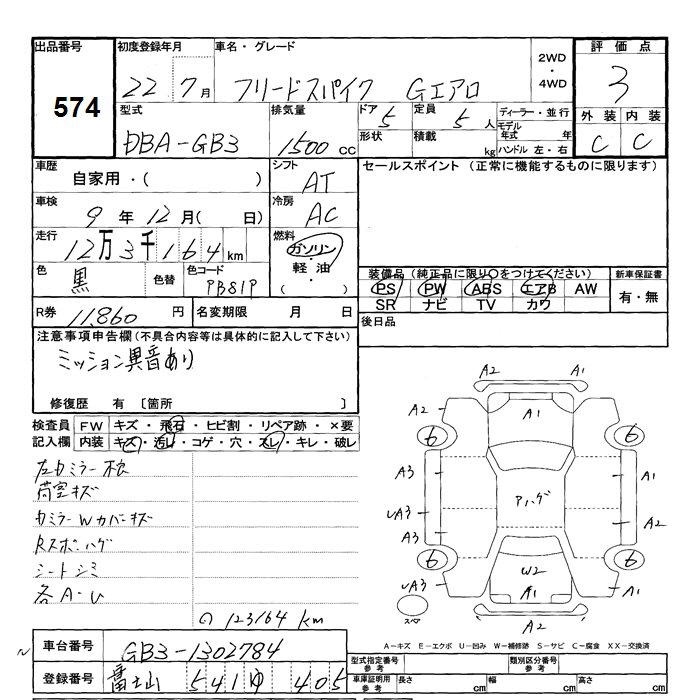 出品番号
574
初度登録年月
22 7月
車名・グレード
フリードスパイク Gエアロ
2WD
・
4WD
評価点
3
外装 内装
C C
型式
DBA-GB3
排気量
1500 cc
ドア 5
形状
定員 5 人
積載 kg
ディーラー・並行
モデル年式 年
ハンドル 左・右
車歴
自家用・( )
シフト
AT
セールスポイント (正常に機能するものに限ります)
車検
9年 12月( 日)
冷房
AC
走行
12万3千164 km
燃料
ガソリン
・
軽油
( )
色
黒
色替
色コード
PB81P
装備品(純正品に限り○をつけてください)
PS PW ABS エアB AW
SR ナビ TV カワ
新車保証書
有・無
R券 11,860 円
名変期限 月 日
後日品
注意事項申告欄(不具合内容等は具体的に記入して下さい)
ミッション異音あり
修復歴 有 〔箇所 〕
検査員
記入欄
FW キズ・飛石・ヒビ割・リペア跡・×要
内装 キズ・汚れ・コゲ・穴・スレ・キレ・破レ
荷室キズ
カミラーWカバーキズ
Rスポハゲ
シートシミ
各A-U
123164 km
A2 A1
A2 A1 A1
6 6
A3 A1
Aハゲ
A3 A2
A3
6 6
W2
A3 A1 A1
スペ
A2
A-キズ E-エクボ U-凹み W-補修跡 S-サビ C-腐食 XX-交換済
車台番号
GB3-1302784
登録番号
富士山 541 ゆ 405
型式指定番号
参考
類別区分番号
参考
車庫証明用
参考
長さ cm
幅 cm
高さ cm